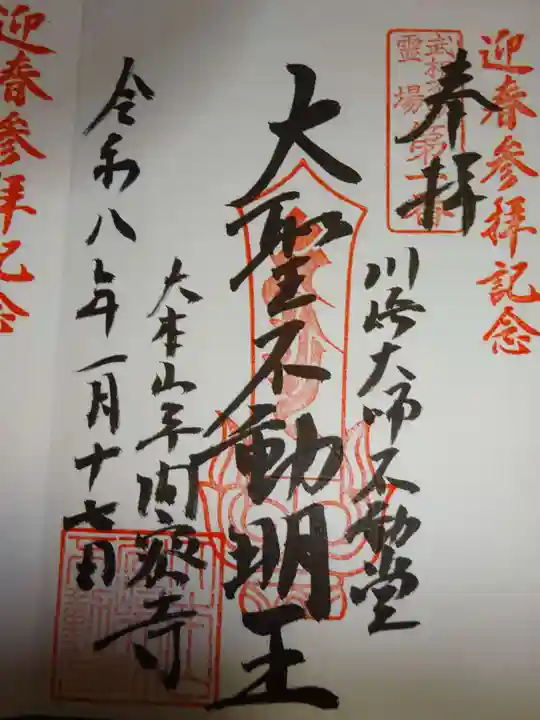 迎春参拝記念
奉拝
武相
霊場第一番
川崎大師不動堂
大聖不動明王
大本山平間寺
令和八年一月十七日
迎春参拝記念